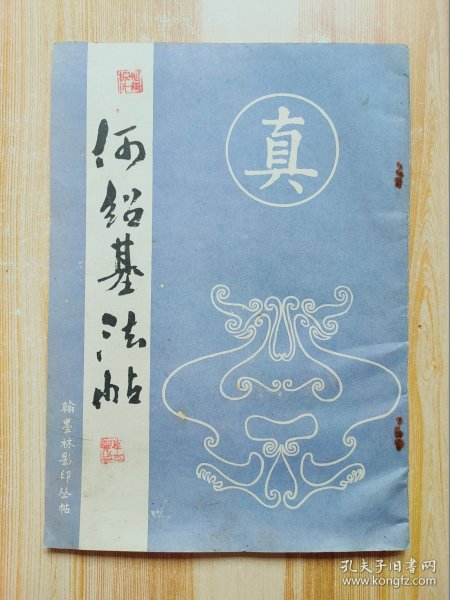 真
何绍基法帖
翰墨林影印丛帖
孔夫子旧书网
www.kongfz.com